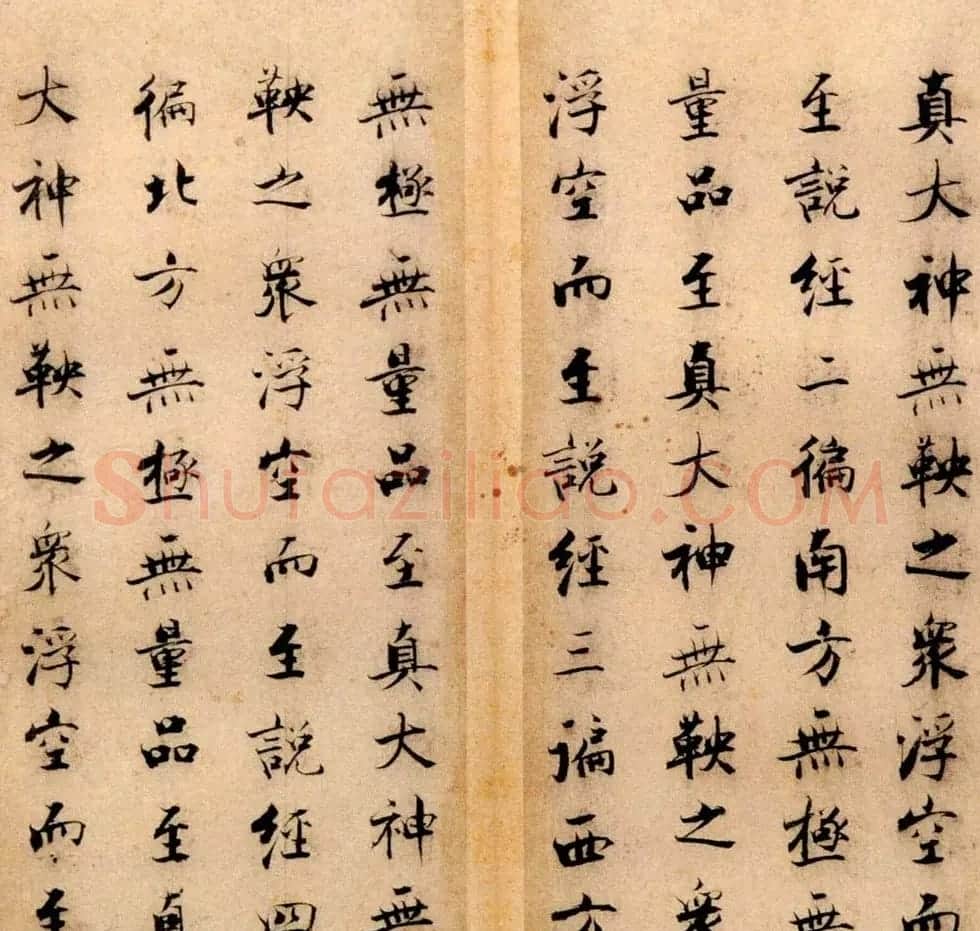 真大神無鞅之衆浮空而
至說經二徧南方無極無
量品至真大神無鞅之衆
浮空而至說經三謆西方
無極無量品至真大神無
鞅之衆浮空而至說經四
徧北方無極無量品至真
大神無鞅之衆浮空而至
Shufaziliao.COM